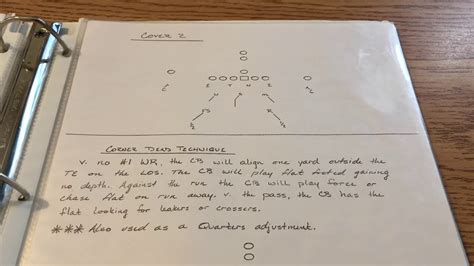 COVER 2
C E T N E C
CORNER TECHS TECHNIQUE
V. NO #1 WR, THE CB WILL ALIGN ONE YARD OUTSIDE THE
TE ON THE LOS. THE CB WILL PLAY FLAT FOOTED GAINING
NO DEPTH. AGAINST THE RUN THE CB WILL PLAY FORCE OR
CHASE FLAT ON RUN AWAY. V. THE PASS, THE CB HAS THE
FLAT LOOKING FOR LEAKERS OR CROSSERS.
*** ALSO USED AS A QUARTERS ADJUSTMENT.